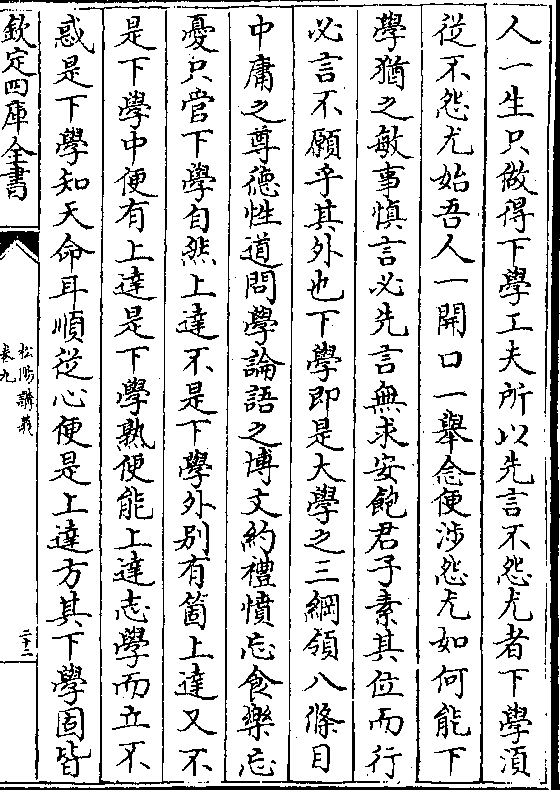 人一生只做得下學工夫所以先言不怨尤者下學須
從不怨尤始吾人一開口一舉念便涉怨尤如何能下
學猶之敏事慎言必先言無求安飽君子素其位而行
必言不願乎其外也下學即是大學之三綱領八條目
中庸之尊德性道問學論語之博文約禮憤忘食樂忘
憂只管下學自然上達不是下學外别有箇上達又不
是下學中便有上達是下學熟便能上達志學而立不
惑是下學知天命耳順從心便是上達方其下學固皆
欽定四庫全書
松陽講義
卷九
三十二